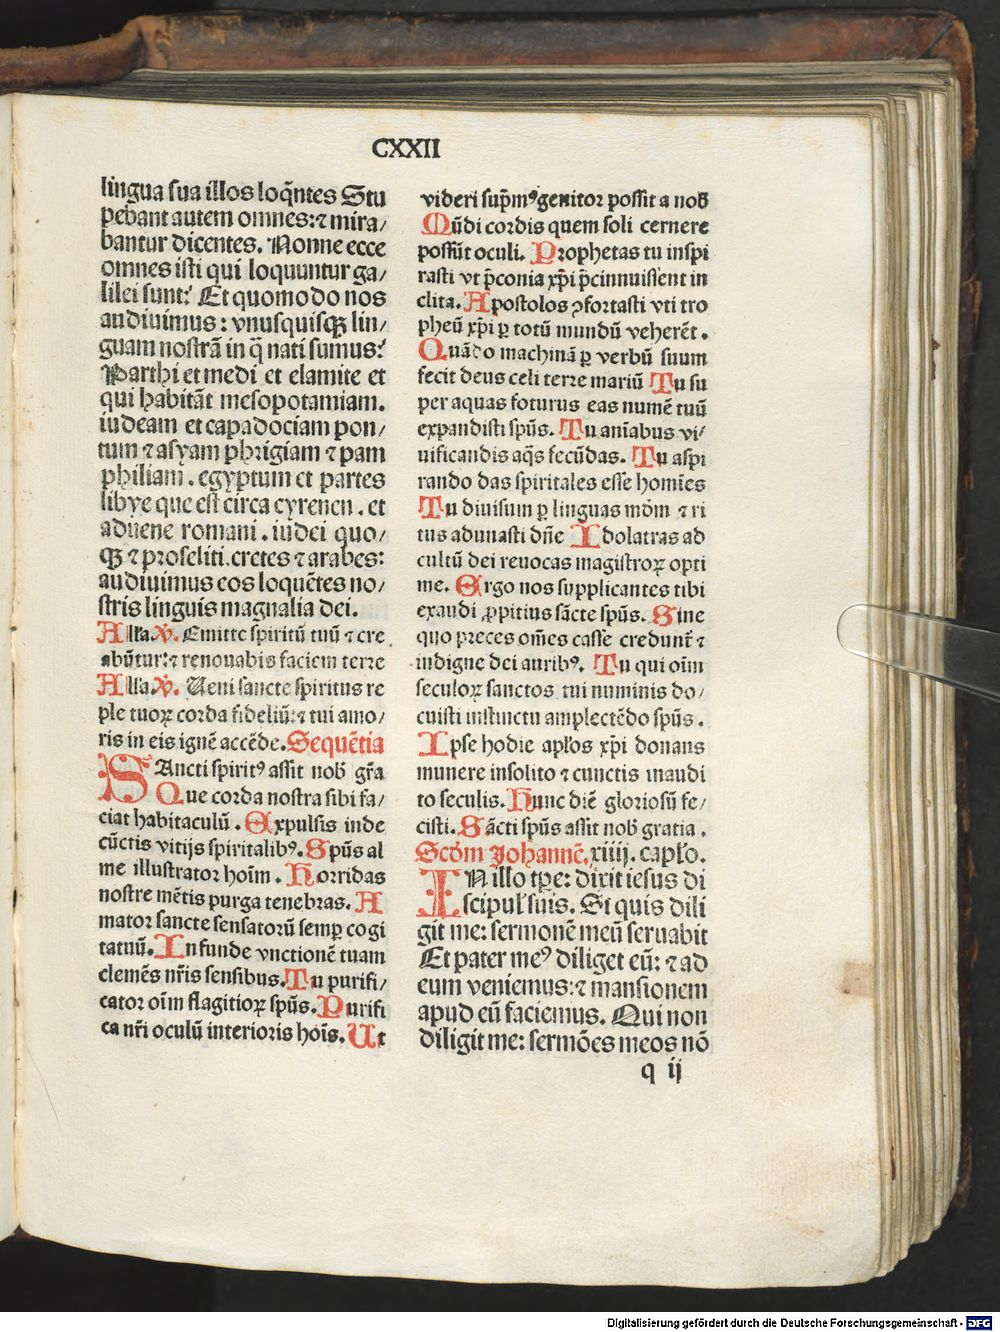 CXXII
lingua sua illos loq̃ntes Stu
pebant autem omnes: ⁊ mira/
bantur dicentes. Nonne ecce
omnes isti qui loquuntur ga/
lilei sunt? Et quomodo nos
audiuimus: vnusquisqꝫ lin/
guam nostrã in q̃ nati sumus?
Parthi et medi et elamite et
qui habitãt mesopotamiam.
iudeam et capadociam pon/
tum ⁊ asyam phrigiam ⁊ pam
philiam. egyptum et partes
libye que est circa cyrenen. et
aduene romani. iudei quo/
qꝫ ⁊ proseliti. cretes ⁊ arabes:
audiuimus eos loquẽtes no/
stris linguis magnalia dei.
Alľa. ℣. Emitte spiritũ tuũ ⁊ cre
abũtur: ⁊ renouabis faciem terre
Alľa. ℣. Ueni sancte spiritus re
ple tuoꝝ corda fideliũ: ⁊ tui amo/
ris in eis ignẽ accẽde. Sequẽtia
SAncti spiritꝰ assit nob̃ gr̃a
Que corda nostra sibi fa/
ciat habitaculũ. Expulsis inde
cũctis vitijs spiritalibꝰ. Sp̃us al
me illustrator hoĩm. Horridas
nostre mẽtis purga tenebras. A
mator sancte sensatorũ semꝑ cogi
tatuũ. Infunde vnctionẽ tuam
clemẽs nr̃is sensibus. Tu purifi/
cator oĩm flagitioꝝ sp̃us. Purifi
ca nr̃i oculũ interioris hoĩs. Ut
videri sup̃mꝰ genitor possit a nob̃
Mũdi cordis quem soli cernere
possũt oculi. Prophetas tu inspi
rasti vt p̃conia xp̃i p̃cinnuissent in
clita. Apostolos ꝯfortasti vti tro
pheũ xp̃i ꝑ totũ mundũ veherẽt.
Quãdo machinã ꝑ verbũ suum
fecit deus celi terre mariũ Tu su
per aquas foturus eas numẽ tuũ
expandisti sp̃us. Tu aniãbus vi/
uificandis aq̃s fecũdas. Tu aspi
rando das spiritales esse homĩes
Tu diuisum ꝑ linguas mõm ⁊ ri
tus adunasti dñe Idolatras ad
cultũ dei reuocas magistroꝝ opti
me. Ergo nos supplicantes tibi
exaudi ꝓpitius sãcte sp̃us. Sine
quo preces om̃es casse credunt̃ ⁊
indigne dei auribꝰ. Tu qui oĩm
seculoꝝ sanctos tui numinis do/
cuisti instinctu amplectẽdo sp̃us.
Ipse hodie apľos xp̃i donans
munere insolito ⁊ cunctis inaudi
to seculis. Hunc diẽ gloriosũ fe/
cisti. Sãcti sp̃us assit nob̃ gratia.
Scd̃m Johannẽ. xiiij. capľo.
IN illo tp̃e: dixit iesus di
scipuľ suis. Si quis dili
git me: sermonẽ meũ seruabit
Et pater meꝰ diliget eũ: ⁊ ad
eum veniemus: ⁊ mansionem
apud eũ faciemus. Qui non
diligit me: sermões meos nõ
q ij
Digitalisierung gefördert durch die Deutsche Forschungsgemeinschaft - DFG